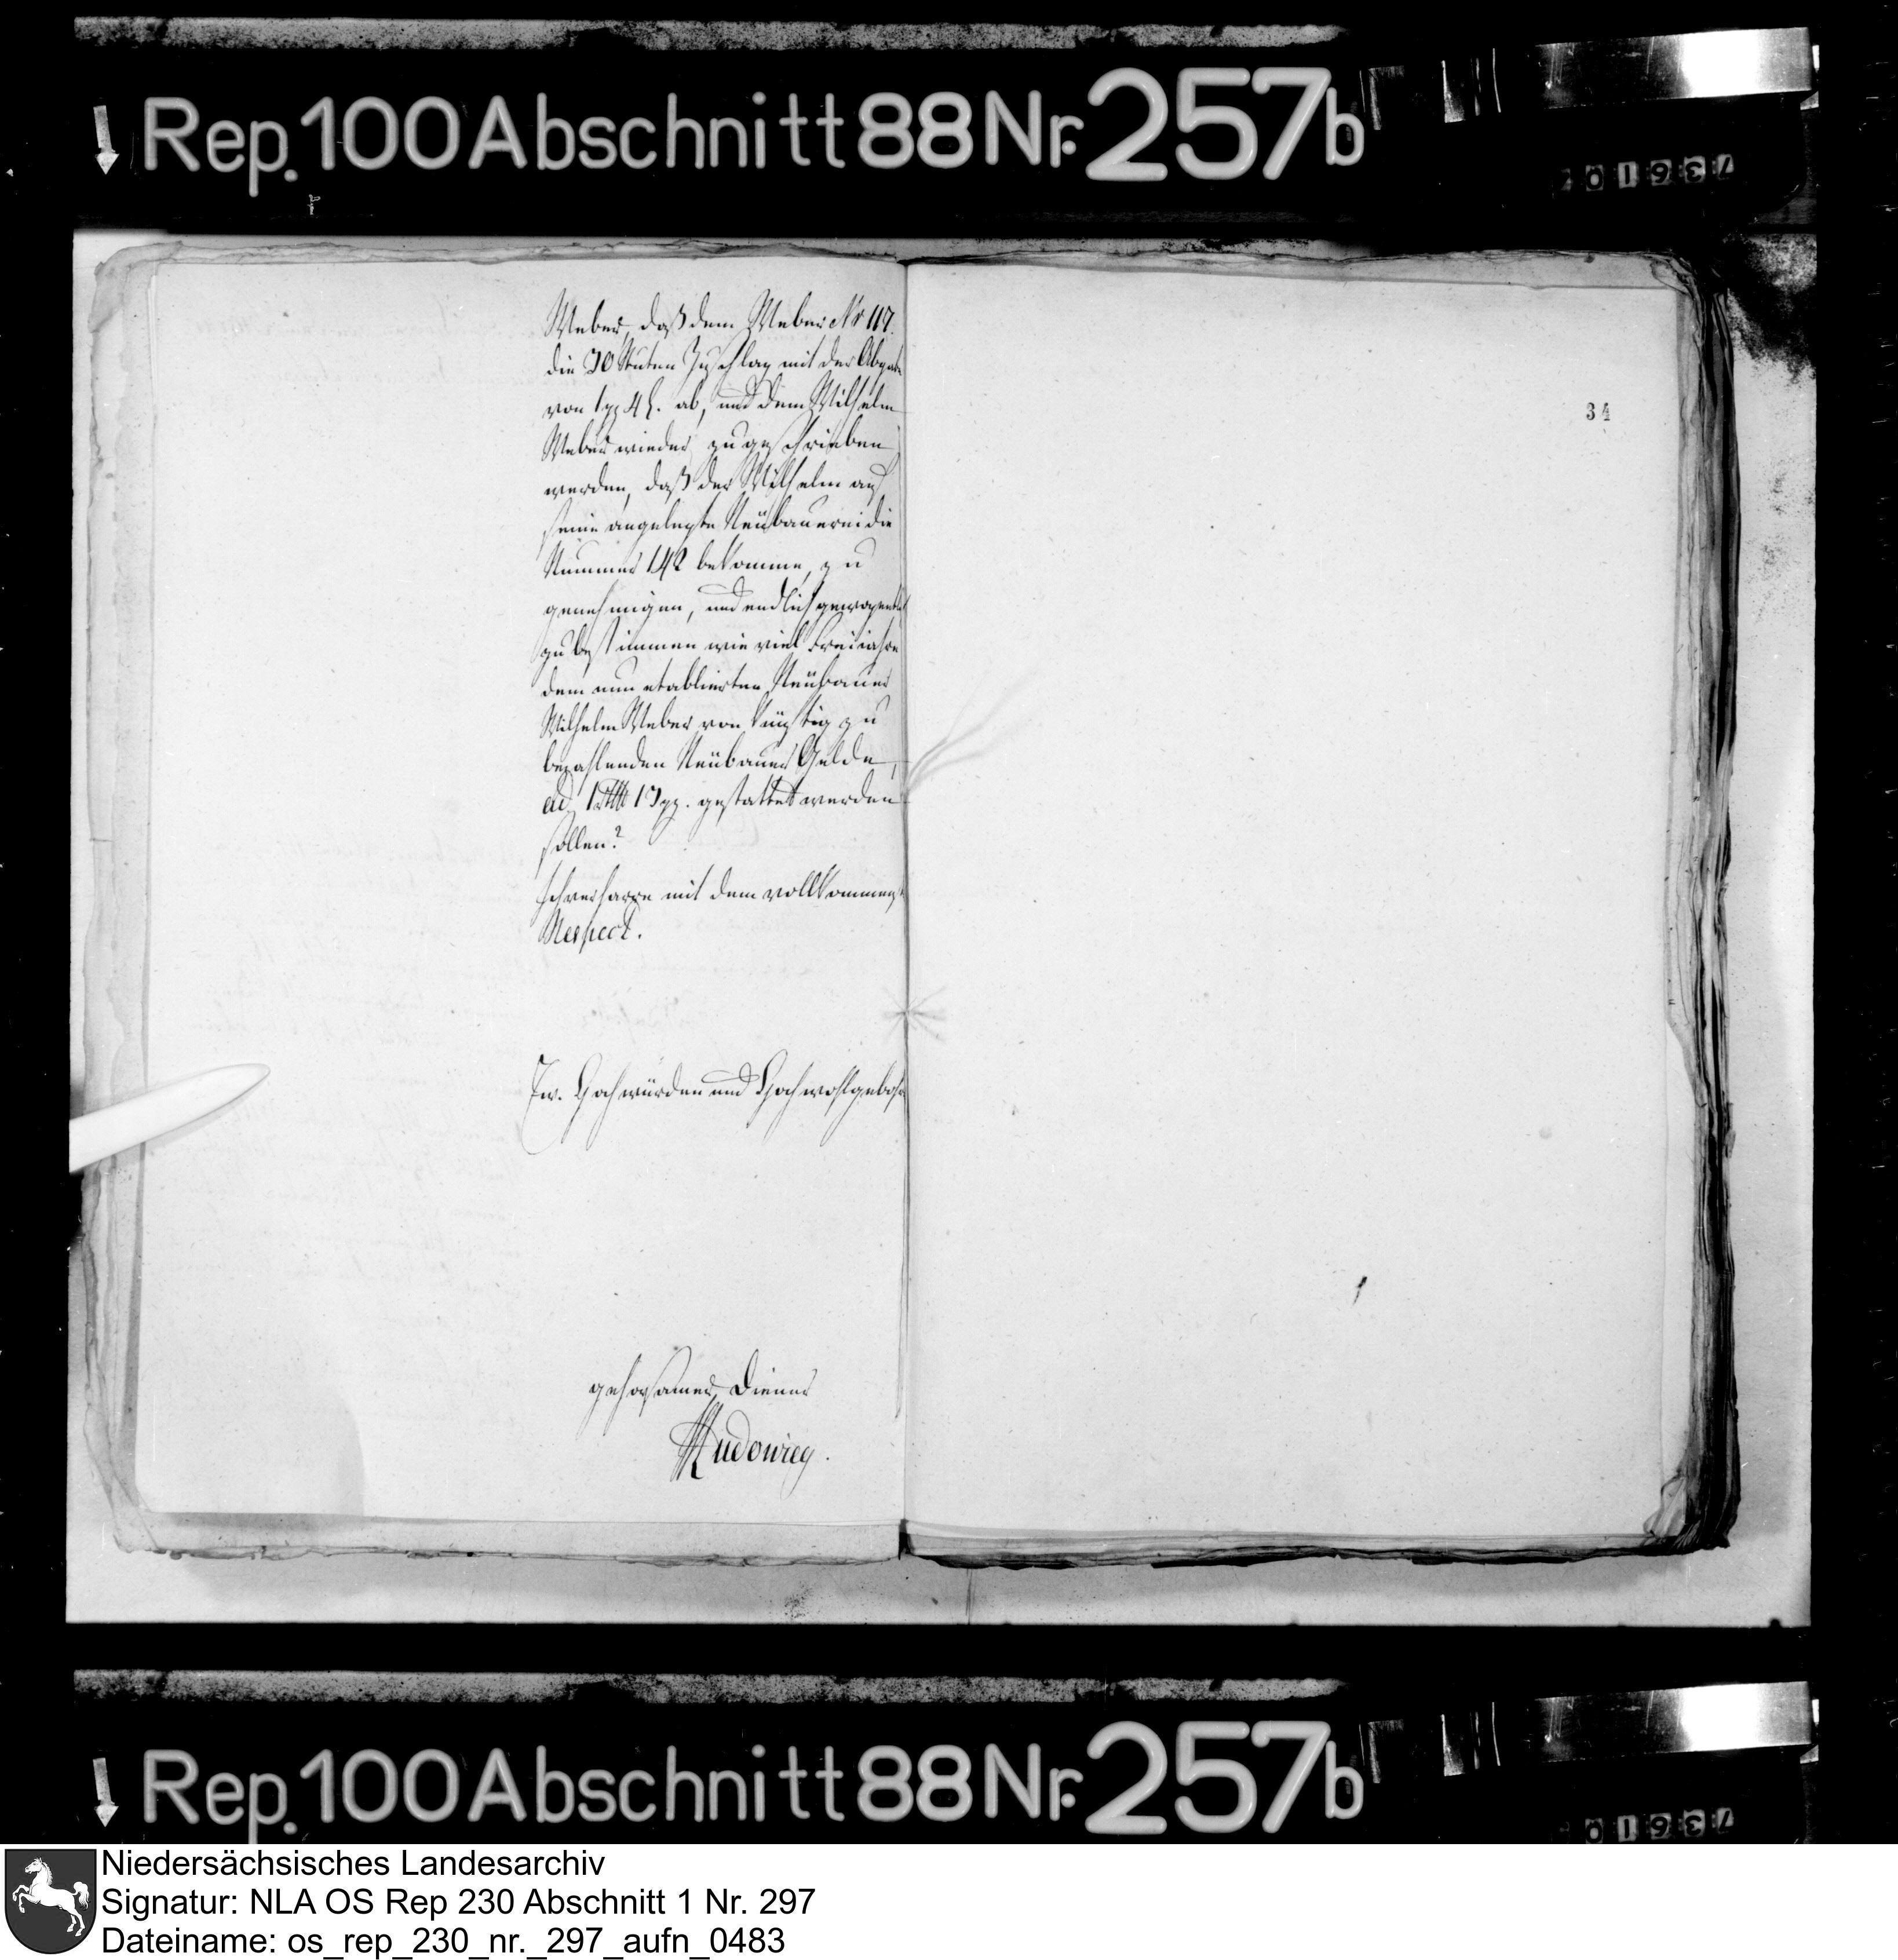 Rep. 100 Abschnitt 88 Nr. 257b
201637
Weber, daß dem Weber No 117.
die 30 Ruten Zuschlag mit der Abgabe
von 1 gg 4 h. ab, und dem Wilhelm
Weber wieder zugeschrieben
werden, daß der Wilhelm auf
seine angelegte Neübauerei die
Nummer 142 bekomme, zu
genehmigen, und endlich
zu bestimmen wie viel Freijahre
dem nun etablierten Neübauer
Wilhelm Weber von künftig zu
bezahlenden Neübauer Gelde,
ad 1 Rthlr 13 gg. gestattet werden
sollen?
Ich verharre mit dem vollkommenst
Respect.
Ew. Hochwürden und Hochwohlgebohr
gehorsamer Diener
Rudowieg.
34
Rep. 100 Abschnitt 88 Nr. 257b
Niedersächsisches Landesarchiv
Signatur: NLA OS Rep 230 Abschnitt 1 Nr. 297
Dateiname: os_rep_230_nr._297_aufn_0483